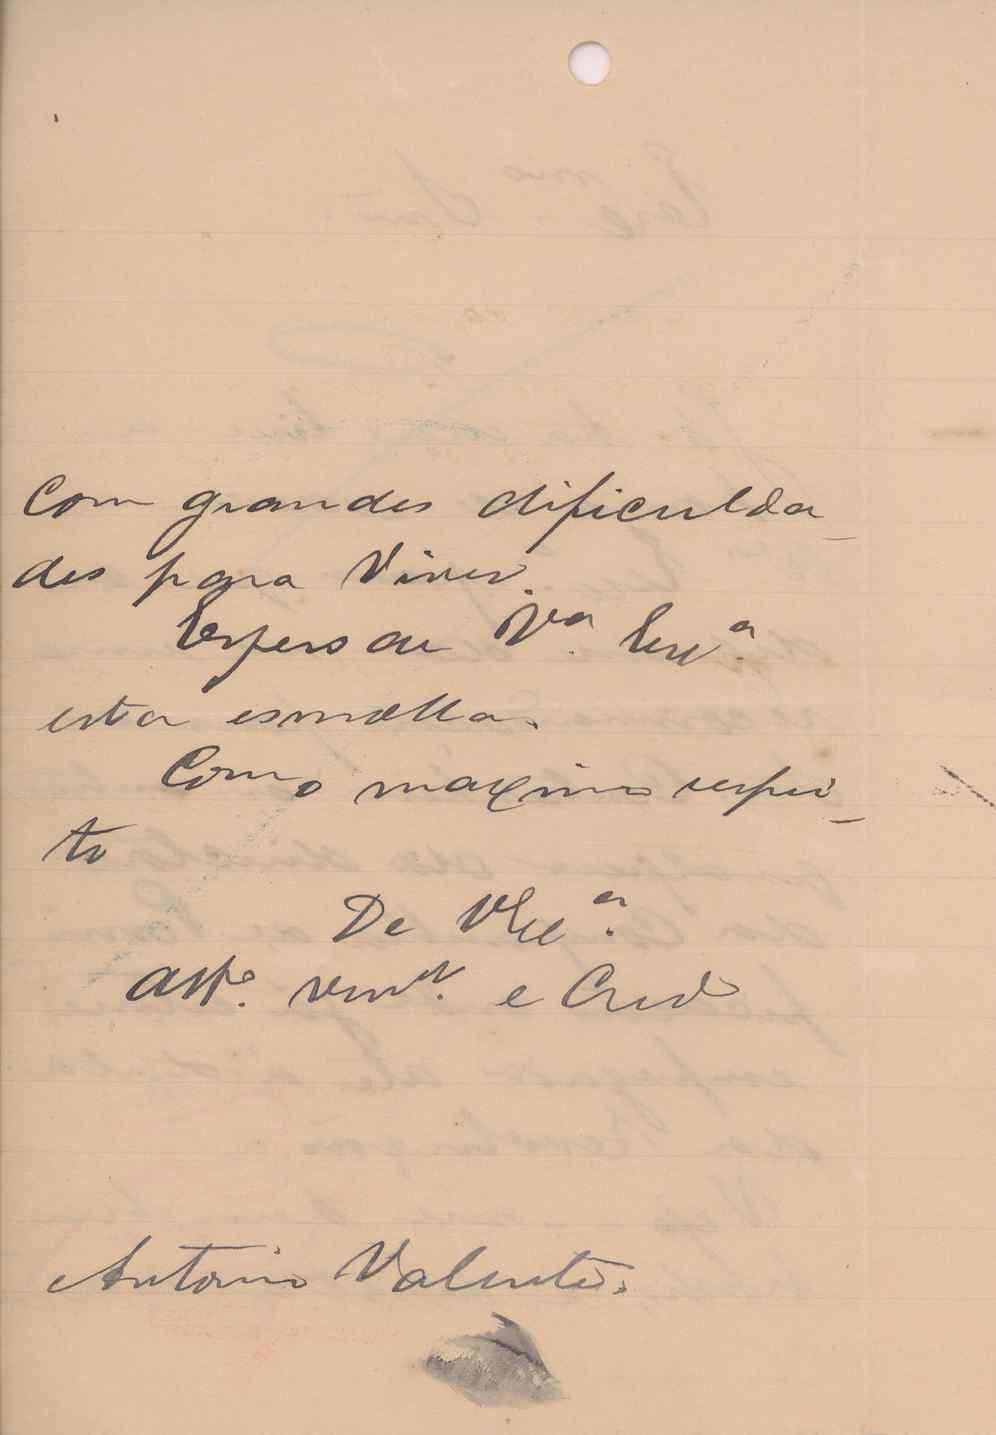 Com grandes dificulda_
des para Viver.
Espero de Vª. Exª.
esta esmolla.
Com o maximo respei_
to
De VExª.
Attº. venºr. e Crdº
Antonio Valente.